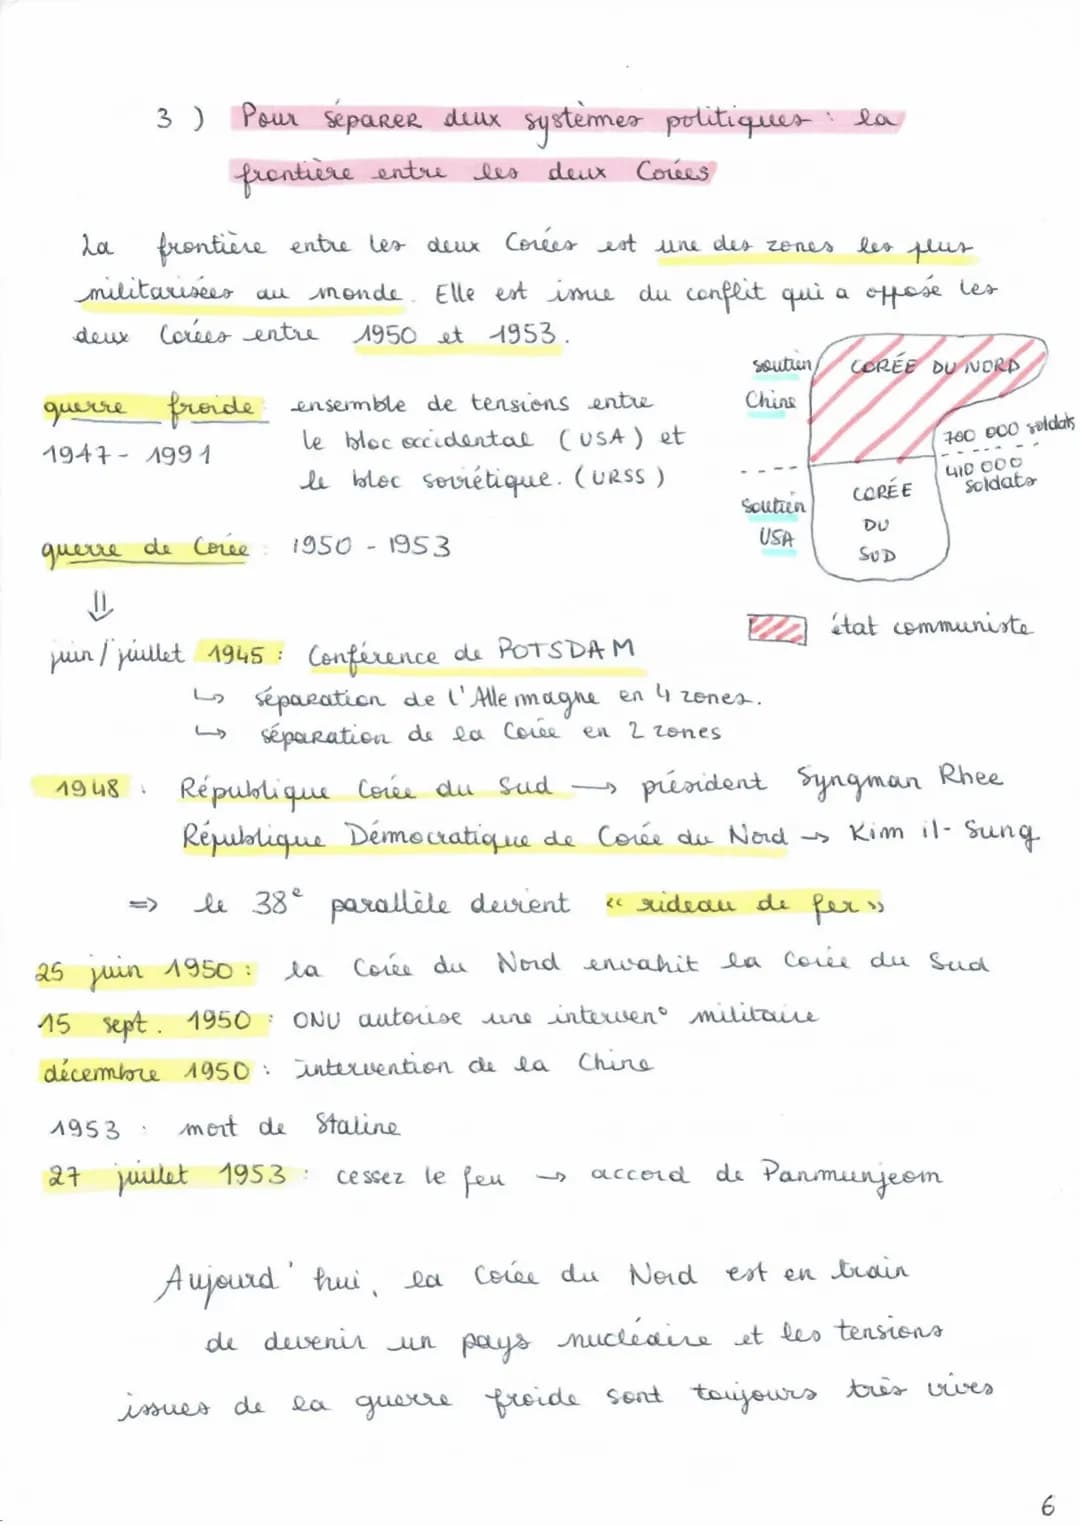 3 ) Pour séparer deux systèmes politiques : la
frontière entre les deux Corées
La frontière entre les deux Corées est une des zones les plus
militarisées au monde. Elle est issue du conflit qui a opposé les
deux Corées entre 1950 et 1953.
soutien
Chine
CORÉE DU NORD
760 000 soldats
410 000
soldats
soutien
USA
CORÉE
DU
SUD
état communiste
guerre froide : ensemble de tensions entre
1947 - 1991 le bloc occidental (USA) et
le bloc soviétique. (URSS)
guerre de Corée : 1950 - 1953
⇓
juin / juillet 1945 : Conférence de POTSDAM
↳ séparation de l'Allemagne en 4 zones.
↳ séparation de la Corée en 2 zones
1948 : République Corée du Sud → président Syngman Rhee
République Démocratique de Corée du Nord → Kim il-Sung
⇒ le 38e parallèle devient « rideau de fer »
25 juin 1950 : la Corée du Nord envahit la Corée du Sud
15 sept. 1950 : ONU autorise une interven° militaire
décembre 1950 : intervention de la Chine
1953 : mort de Staline
27 juillet 1953 : cessez le feu → accord de Panmunjeom
Aujourd'hui, la Corée du Nord est en train
de devenir un pays nucléaire et les tensions
issues de la guerre froide sont toujours très vives
6